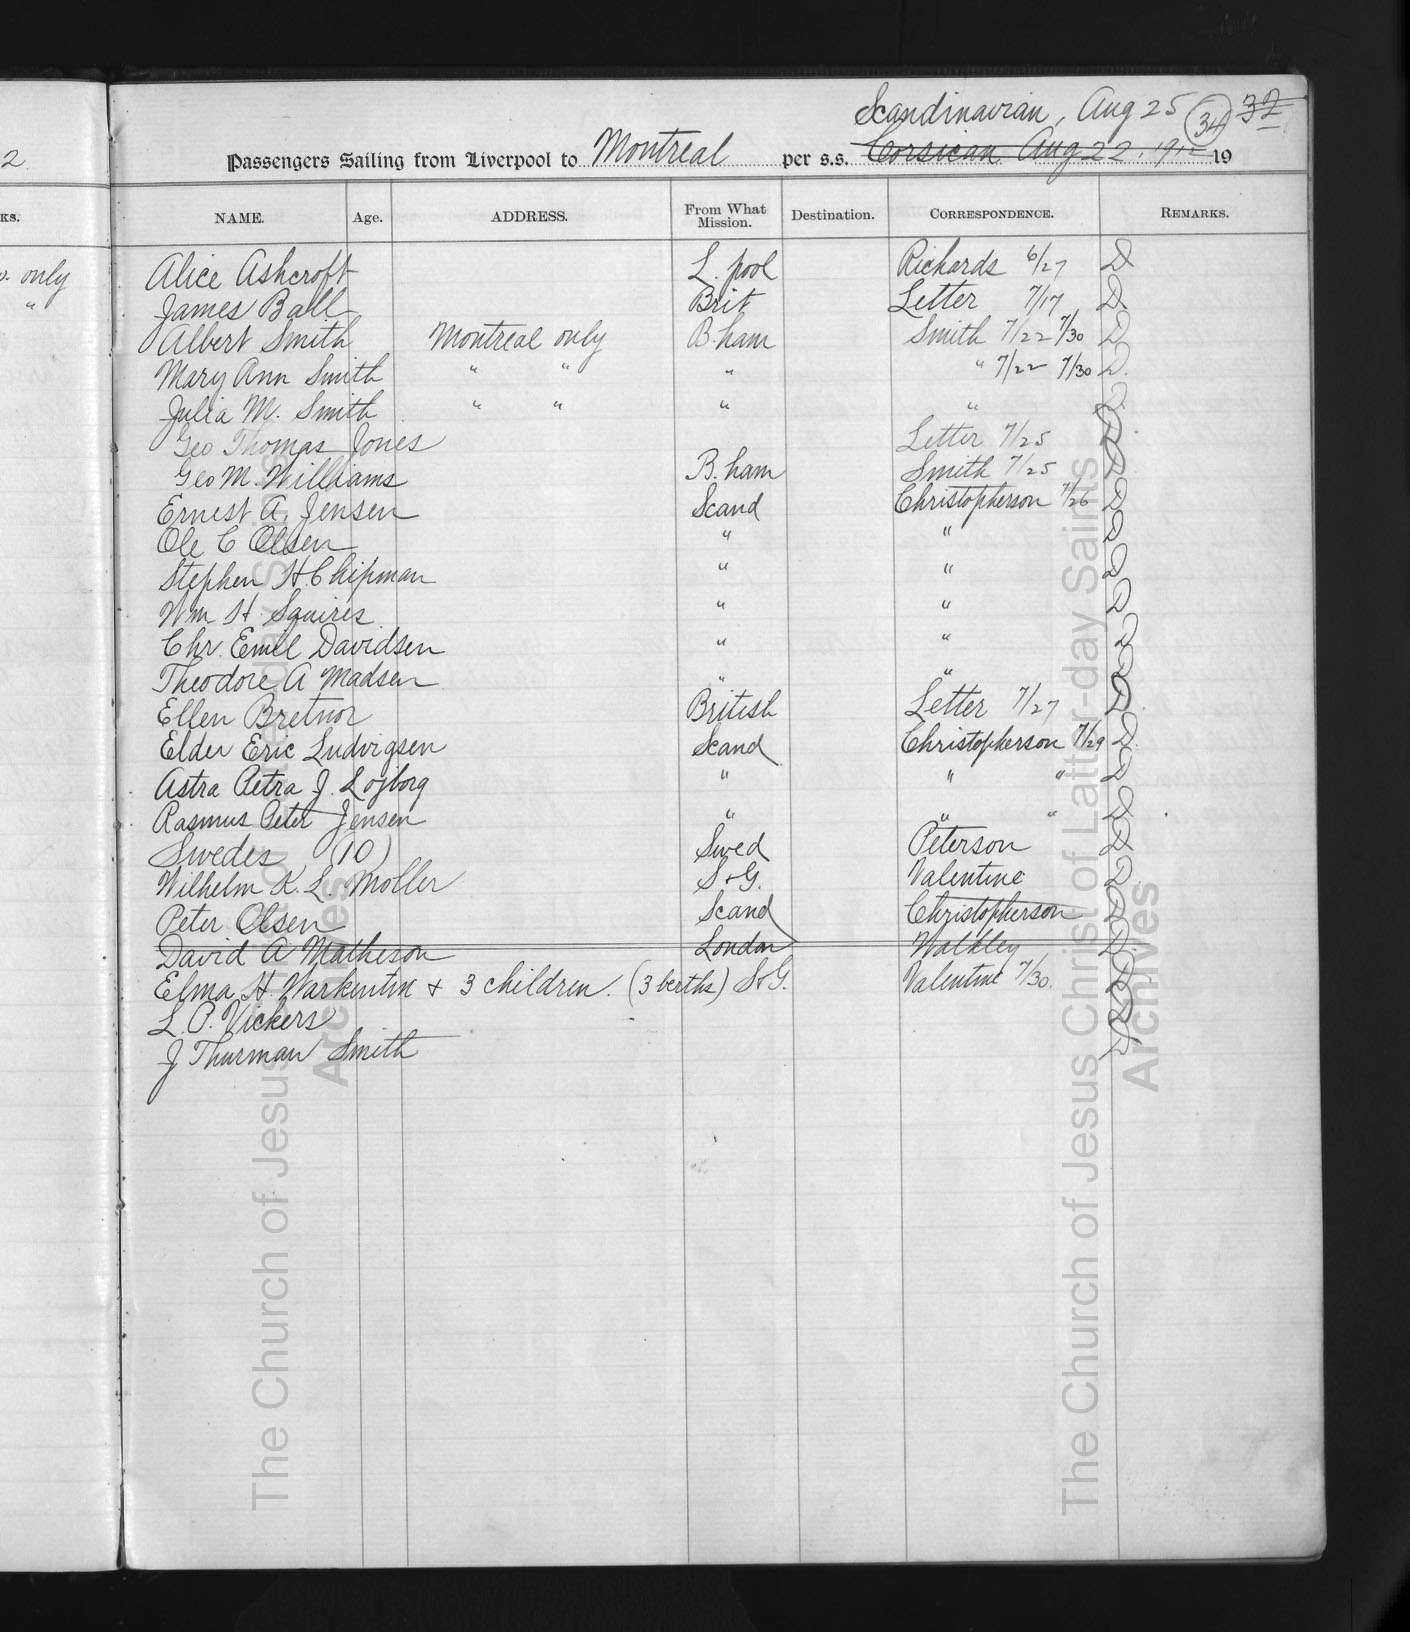 Scandinavian, Aug 25 (34) 32
2
Passengers Sailing from Liverpool to Montreal per s.s. Corsican Aug 22, 1912 19
KS.
NAME. Age. ADDRESS. From What Mission. Destination. CORRESPONDENCE. REMARKS.
only
"
Alice Ashcroft L.pool Richards 6/27 D
James Ball Brit Letter 7/17 D.
Albert Smith Montreal only B.ham Smith 7/22 7/30 D
Mary Ann Smith " " " " 7/22 7/30 D.
Julia M. Smith " " " " D
Geo Thomas Jones Letter 7/25 D
Geo M. Williams B.ham Smith 7/25 D
Ernest A. Jensen Scand Christopherson 7/26 D
Ole C Olsen " " D
Stephen H. Chipman " " D
Wm H. Squires " " D
Chr. Emil Davidsen " " D
Theodore A Madsen " " D
Ellen Bretnor British Letter 7/27 D
Elder Eric Ludvigsen Scand Christopherson 7/29 D.
Astra Petra J. Lojborg " " " D
Rasmus Peter Jensen " " " D
Swedes (10) Swed Peterson D
Wilhelm K. L. Moller S+G. Valentine D
Peter Olsen Scand Christopherson D
David A Matheson London Walkley D.
Elma H. Warkentin + 3 children. (3 berths) S+G. Valentine 7/30. D
L. P. Vickers D
J Thurman Smith D
The Church of Jesus Christ of Latter-day Saints
Archives
The Church of Jesus Christ of Latter-day Saints
Archives